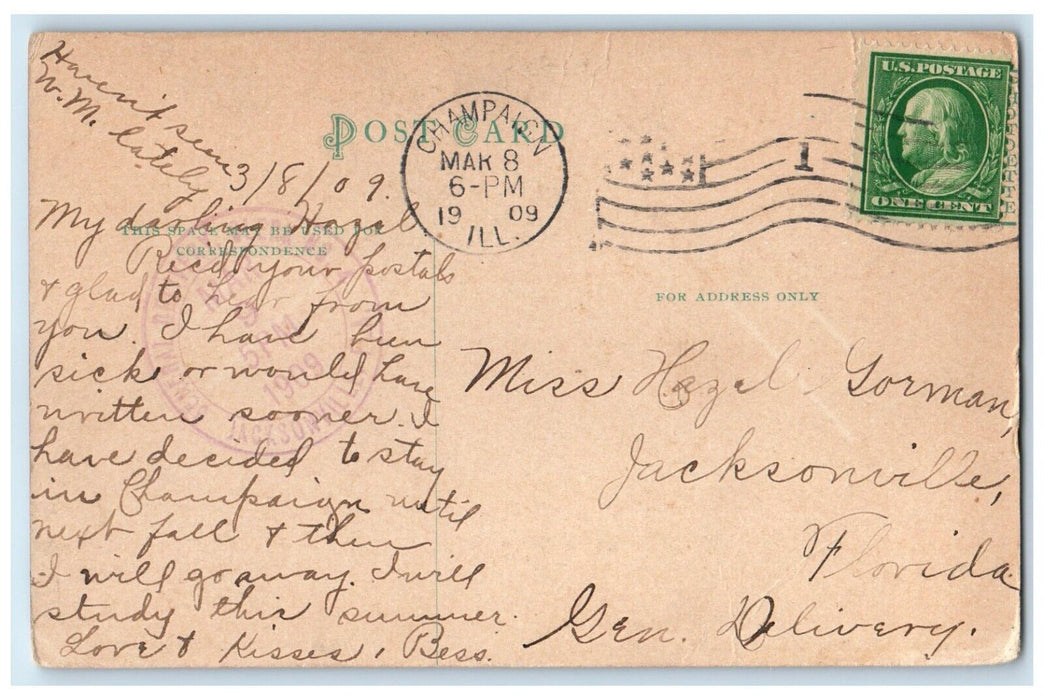 Haven't seen
W. M. lately
POST CARD
CHAMPAIGN
MAR 8
6-PM
19 09
ILL.
1
U.S. POSTAGE
ONE CENT
3/8/09.
THIS SPACE MAY BE USED FOR
CORRESPONDENCE
FOR ADDRESS ONLY
My darling Hazel
Rec'd your postals
& glad to hear from
you. I have been
sick or would have
written sooner. I
have decided to stay
in Champaign until
next fall & then
I will go away. I will
study this summer.
Love & Kisses, Bess.
Miss Hazel Gorman,
Jacksonville,
Florida
Gen. Delivery.
JACKSONVILLE
1909